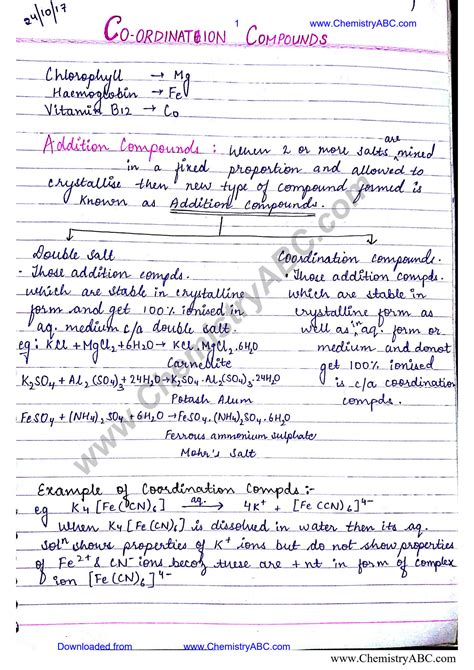 24/10/17
1 www.ChemistryABC.com
CO-ORDINATION COMPOUNDS
Chlorophyll → Mg
Haemoglobin → Fe
Vitamin B12 → Co
Addition Compounds : When 2 or more salts are mixed
in a fixed proportion and allowed to
crystallise then new type of compound formed is
known as Addition compounds.
Double Salt
• Those addition compds.
which are stable in crystalline
form and get 100% ionised in
aq. medium c/a double salt.
eg: KCl + MgCl2 + 6H2O → KCl.MgCl2.6H2O
Carnellite
K2SO4 + Al2(SO4)3 + 24H2O → K2SO4.Al2(SO4)3.24H2O
Potash Alum
FeSO4 + (NH4)2SO4 + 6H2O → FeSO4.(NH4)2SO4.6H2O
Ferrous ammonium sulphate
Mohr's Salt
Coordination compounds.
• Those addition compds.
which are stable in
crystalline form as
well as in aq. form or
medium and donot
get 100% ionised
is c/a coordination
compds.
Example of Coordination Compds :-
eg K4[Fe(CN)6] aq. → 4K+ + [Fe(CN)6]4-
when K4[Fe(CN)6] is dissolved in water then its aq.
soln shows properties of K+ ions but do not show properties
of Fe2+ & CN- ions becoz these are +nt in form of complex
ion [Fe(CN)6]4-
www.ChemistryABC.com
Downloaded from www.ChemistryABC.com
www.ChemistryABC.com